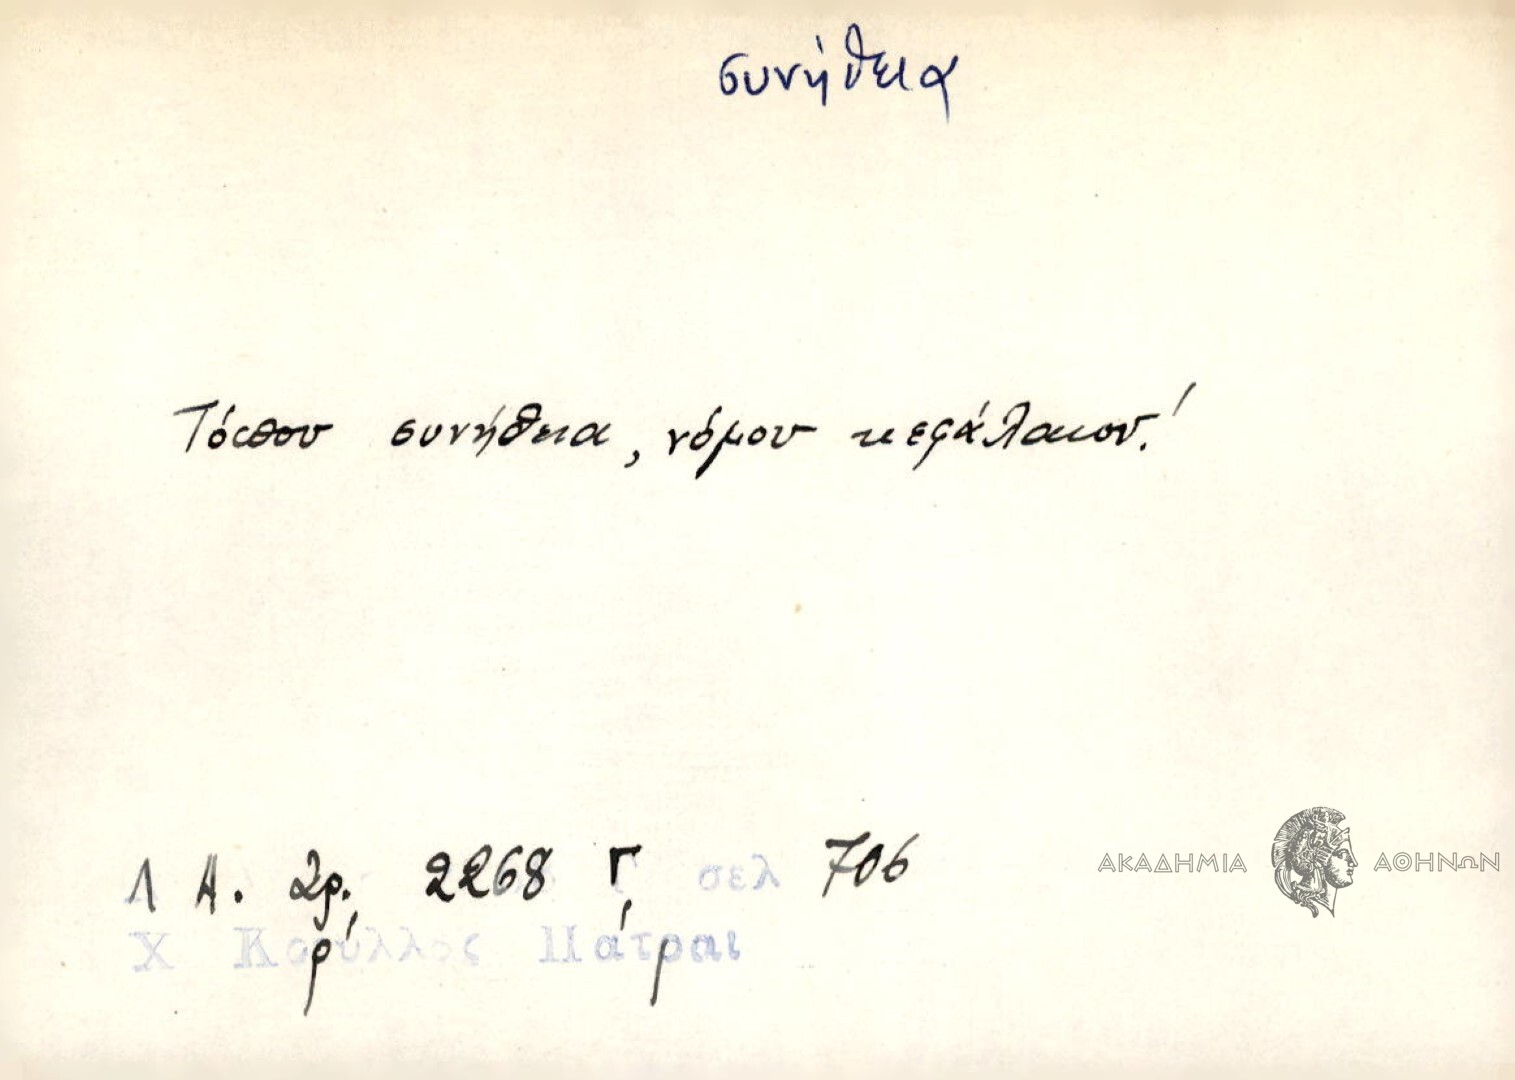 συνήθεια
Τόπου συνήθεια, νόμου κεφάλαιου!
Λ Α. αρ. 2268 Γ, σελ 706
Χ Κορύλλος Πάτραι
ΑΚΑΔΗΜΙΑ ΑΘΗΝΩΝ